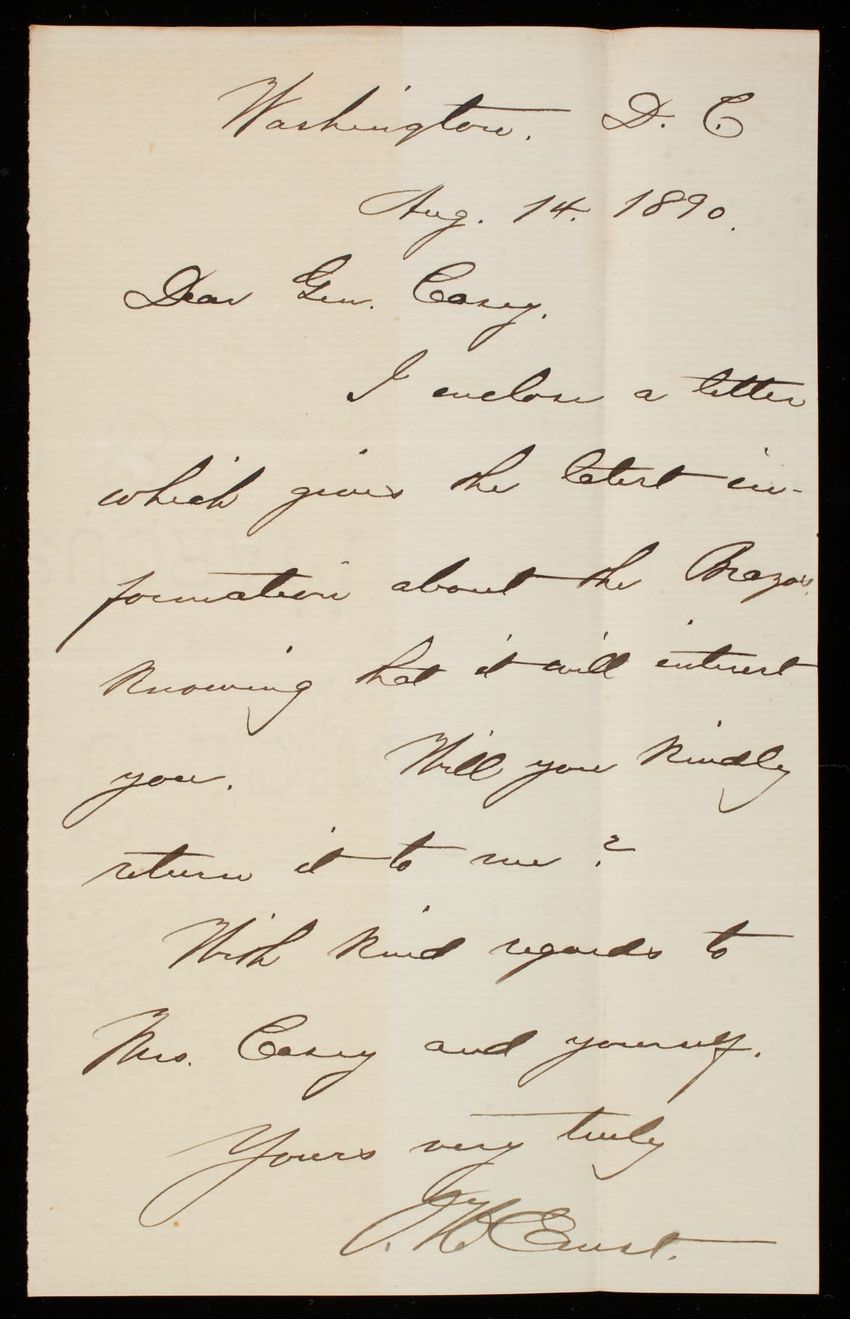 Washington. D. C.
Aug. 14. 1890.
Dear Gen. Casey.
I enclose a letter
which gives the latest in-
formation about the Brazos,
knowing that it will interest
you. Will you kindly
return it to me?
With kind regards to
Mrs. Casey and yourself.
Yours very truly
O. H. Ernst.